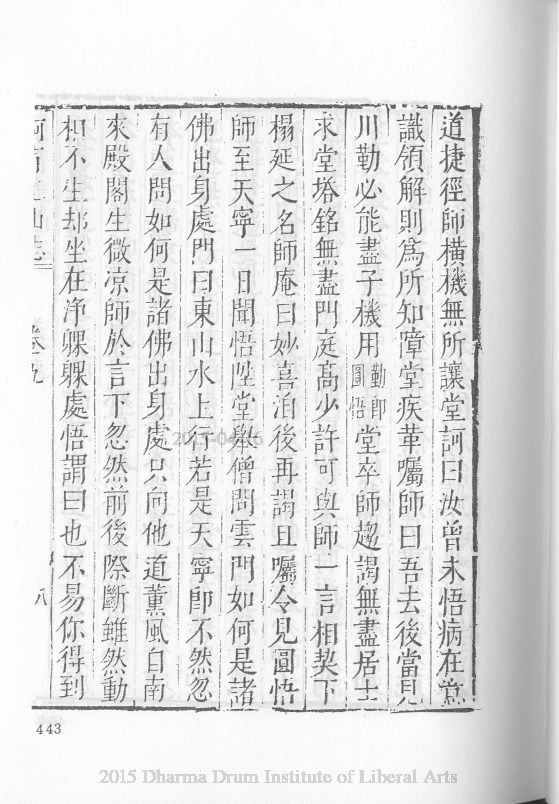 道捷徑師橫機無所讓堂訶曰汝曾未悟病在意
識領解則為所知障堂疾革囑師曰吾去後當見
川勤必能盡子機用勤即圓悟堂卒師趨謁無盡居士
求堂塔銘無盡門庭高少許可與師一言相契下
榻延之名師庵曰妙喜洎後再謁且囑令見圓悟
師至天寧一日聞悟陞堂舉僧問雲門如何是諸
佛出身處門曰東山水上行若是天寧即不然忽
有人問如何是諸佛出身處只向他道薰風自南
來殿閣生微凉師於言下忽然前後際斷雖然動
相不生却坐在净躶躶處悟謂曰也不易你得到
山志 卷九 八
443
2015-04-16
2015 Dharma Drum Institute of Liberal Arts